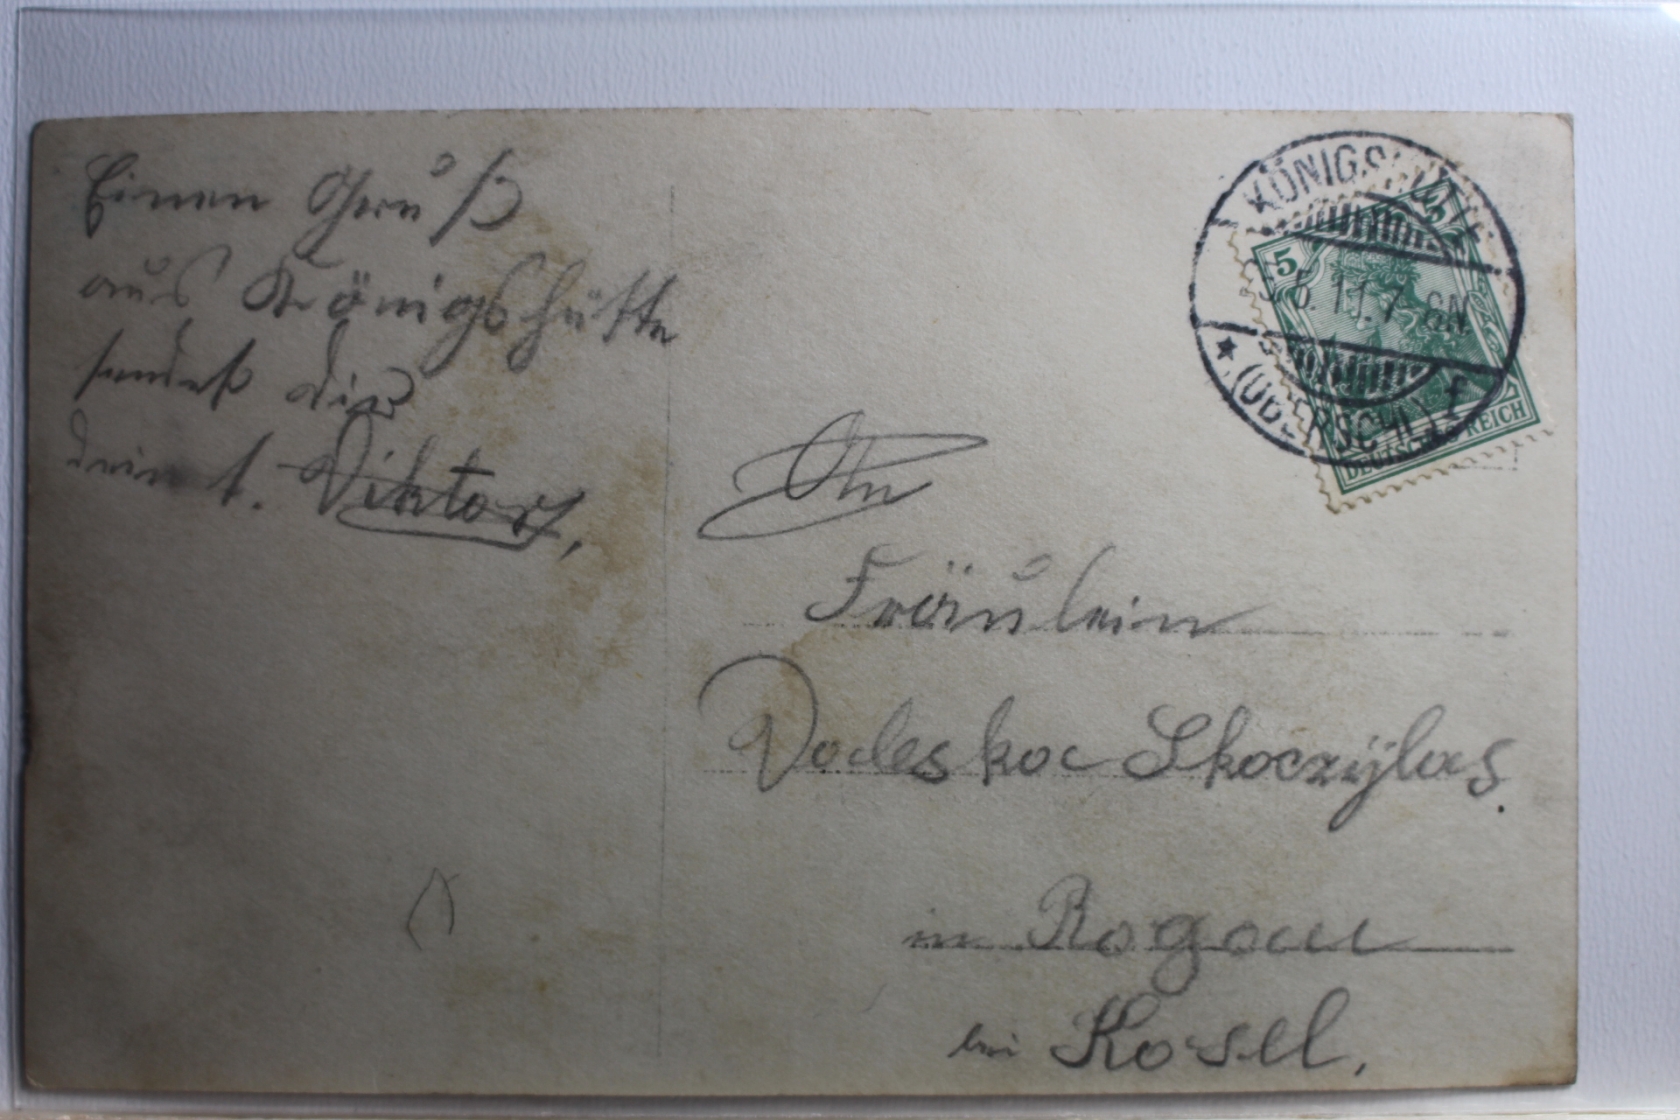 Einen Gruß
aus Königshütte
sendet dir
dein l. Viktor,
KÖNIGSHÜTTE
5 5
5.11.7-8N
* (OBERSCHL.) *
DEUTSCHES REICH
An
Fräulein
Skoczÿlas.
in Rogau
bei Kosel,